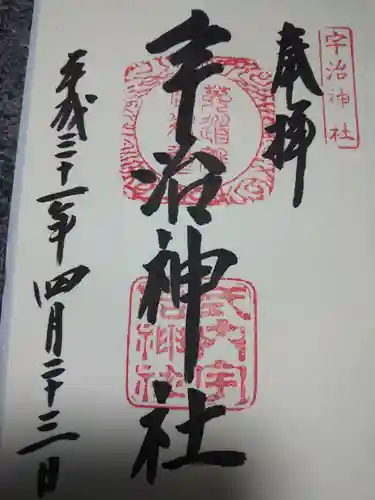 宇治神社
奉拝
宇治神社
式内宇
治神社
平成三十一年四月二十三日